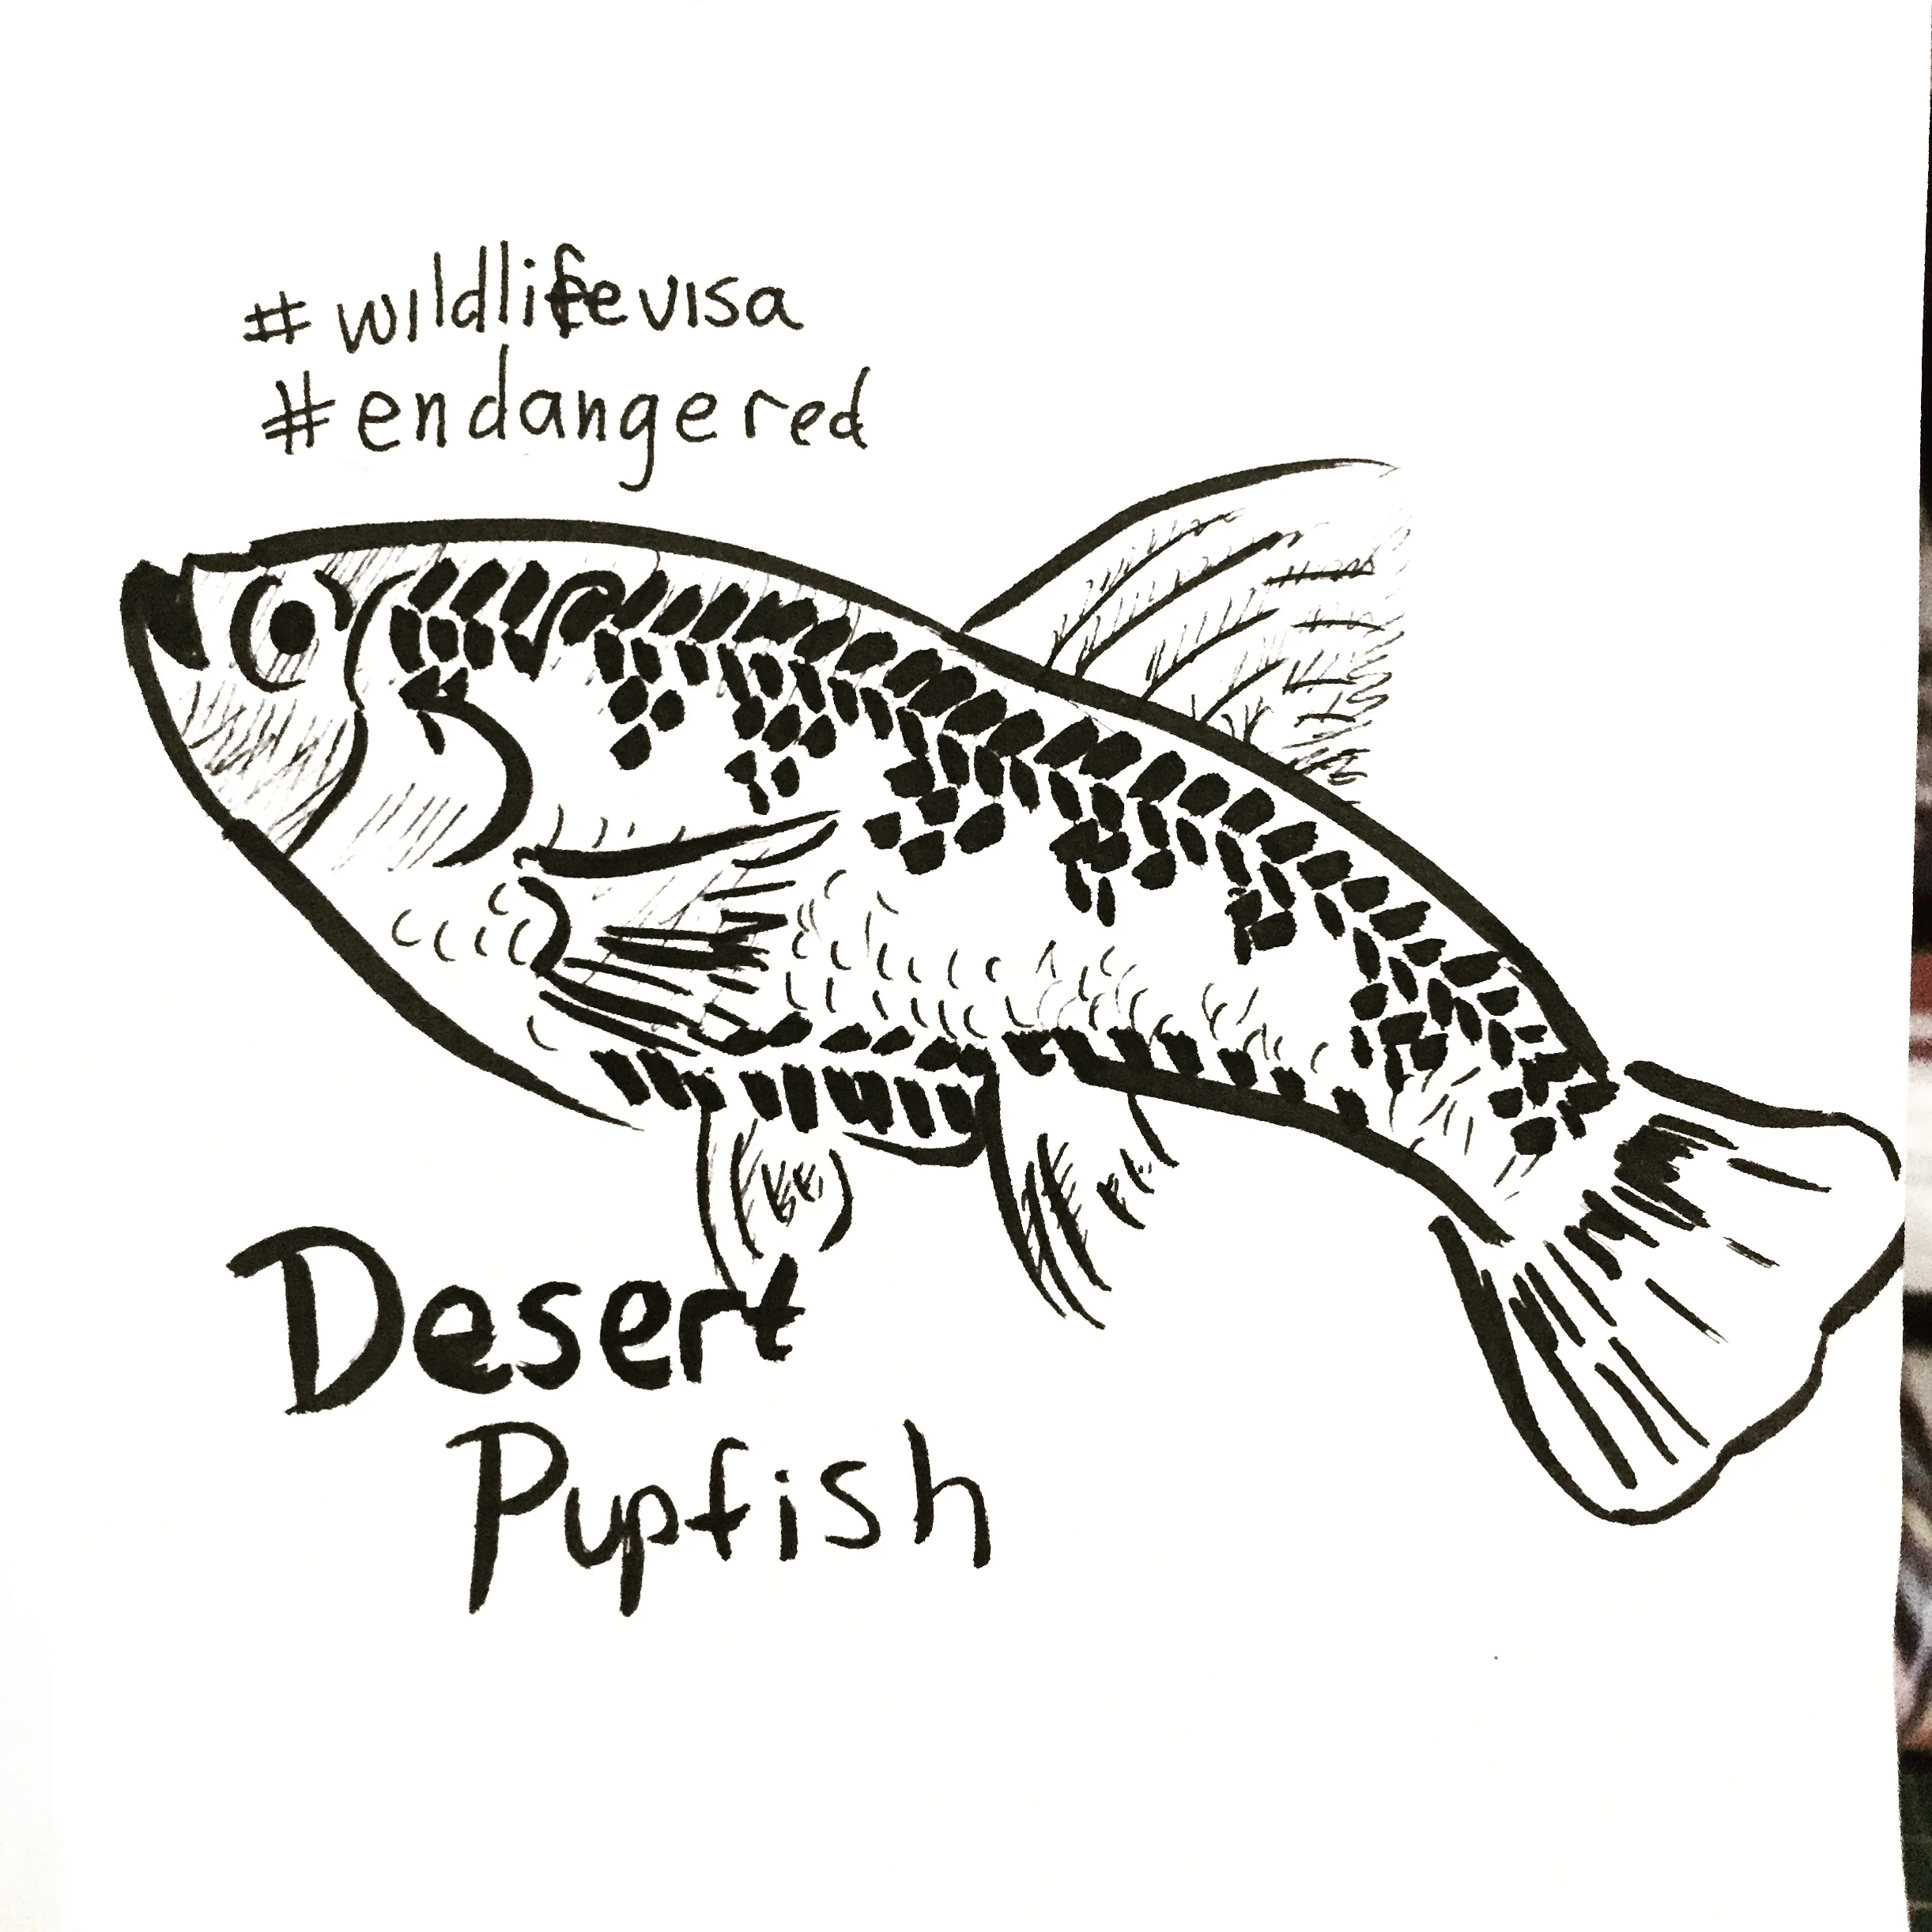 #wildlifevisa
#endangered
Desert
Pupfish